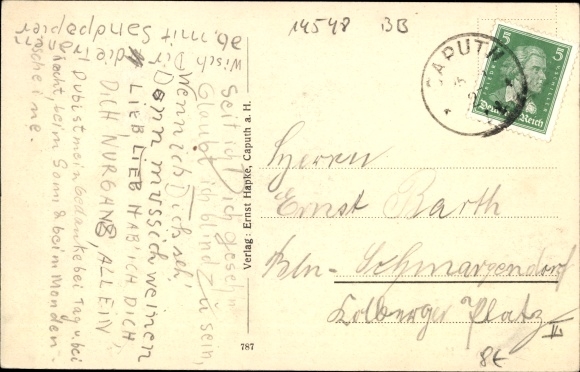 14548 BB
CAPUTH
5 5
Deutsches Reich
Herrn
Ernst Barth
Bln-Schmargendorf
Kolberger Platz
II
8€
Verlag: Ernst Hapke, Caputh a. H.
787
Seit ich Dich gesehn
Glaubt ich blind zu sein,
Wenn ich Dich seh'
Dann muss ich weinen
LIEB LIEB HAB ICH DICH,
DICH NUR GANZ ALLEIN
Du bist mein Gedanke bei Tag u. bei
Nacht, beim Sonn & beim Monden-
scheine.
Wisch Dir die
ab mit Sandpapier